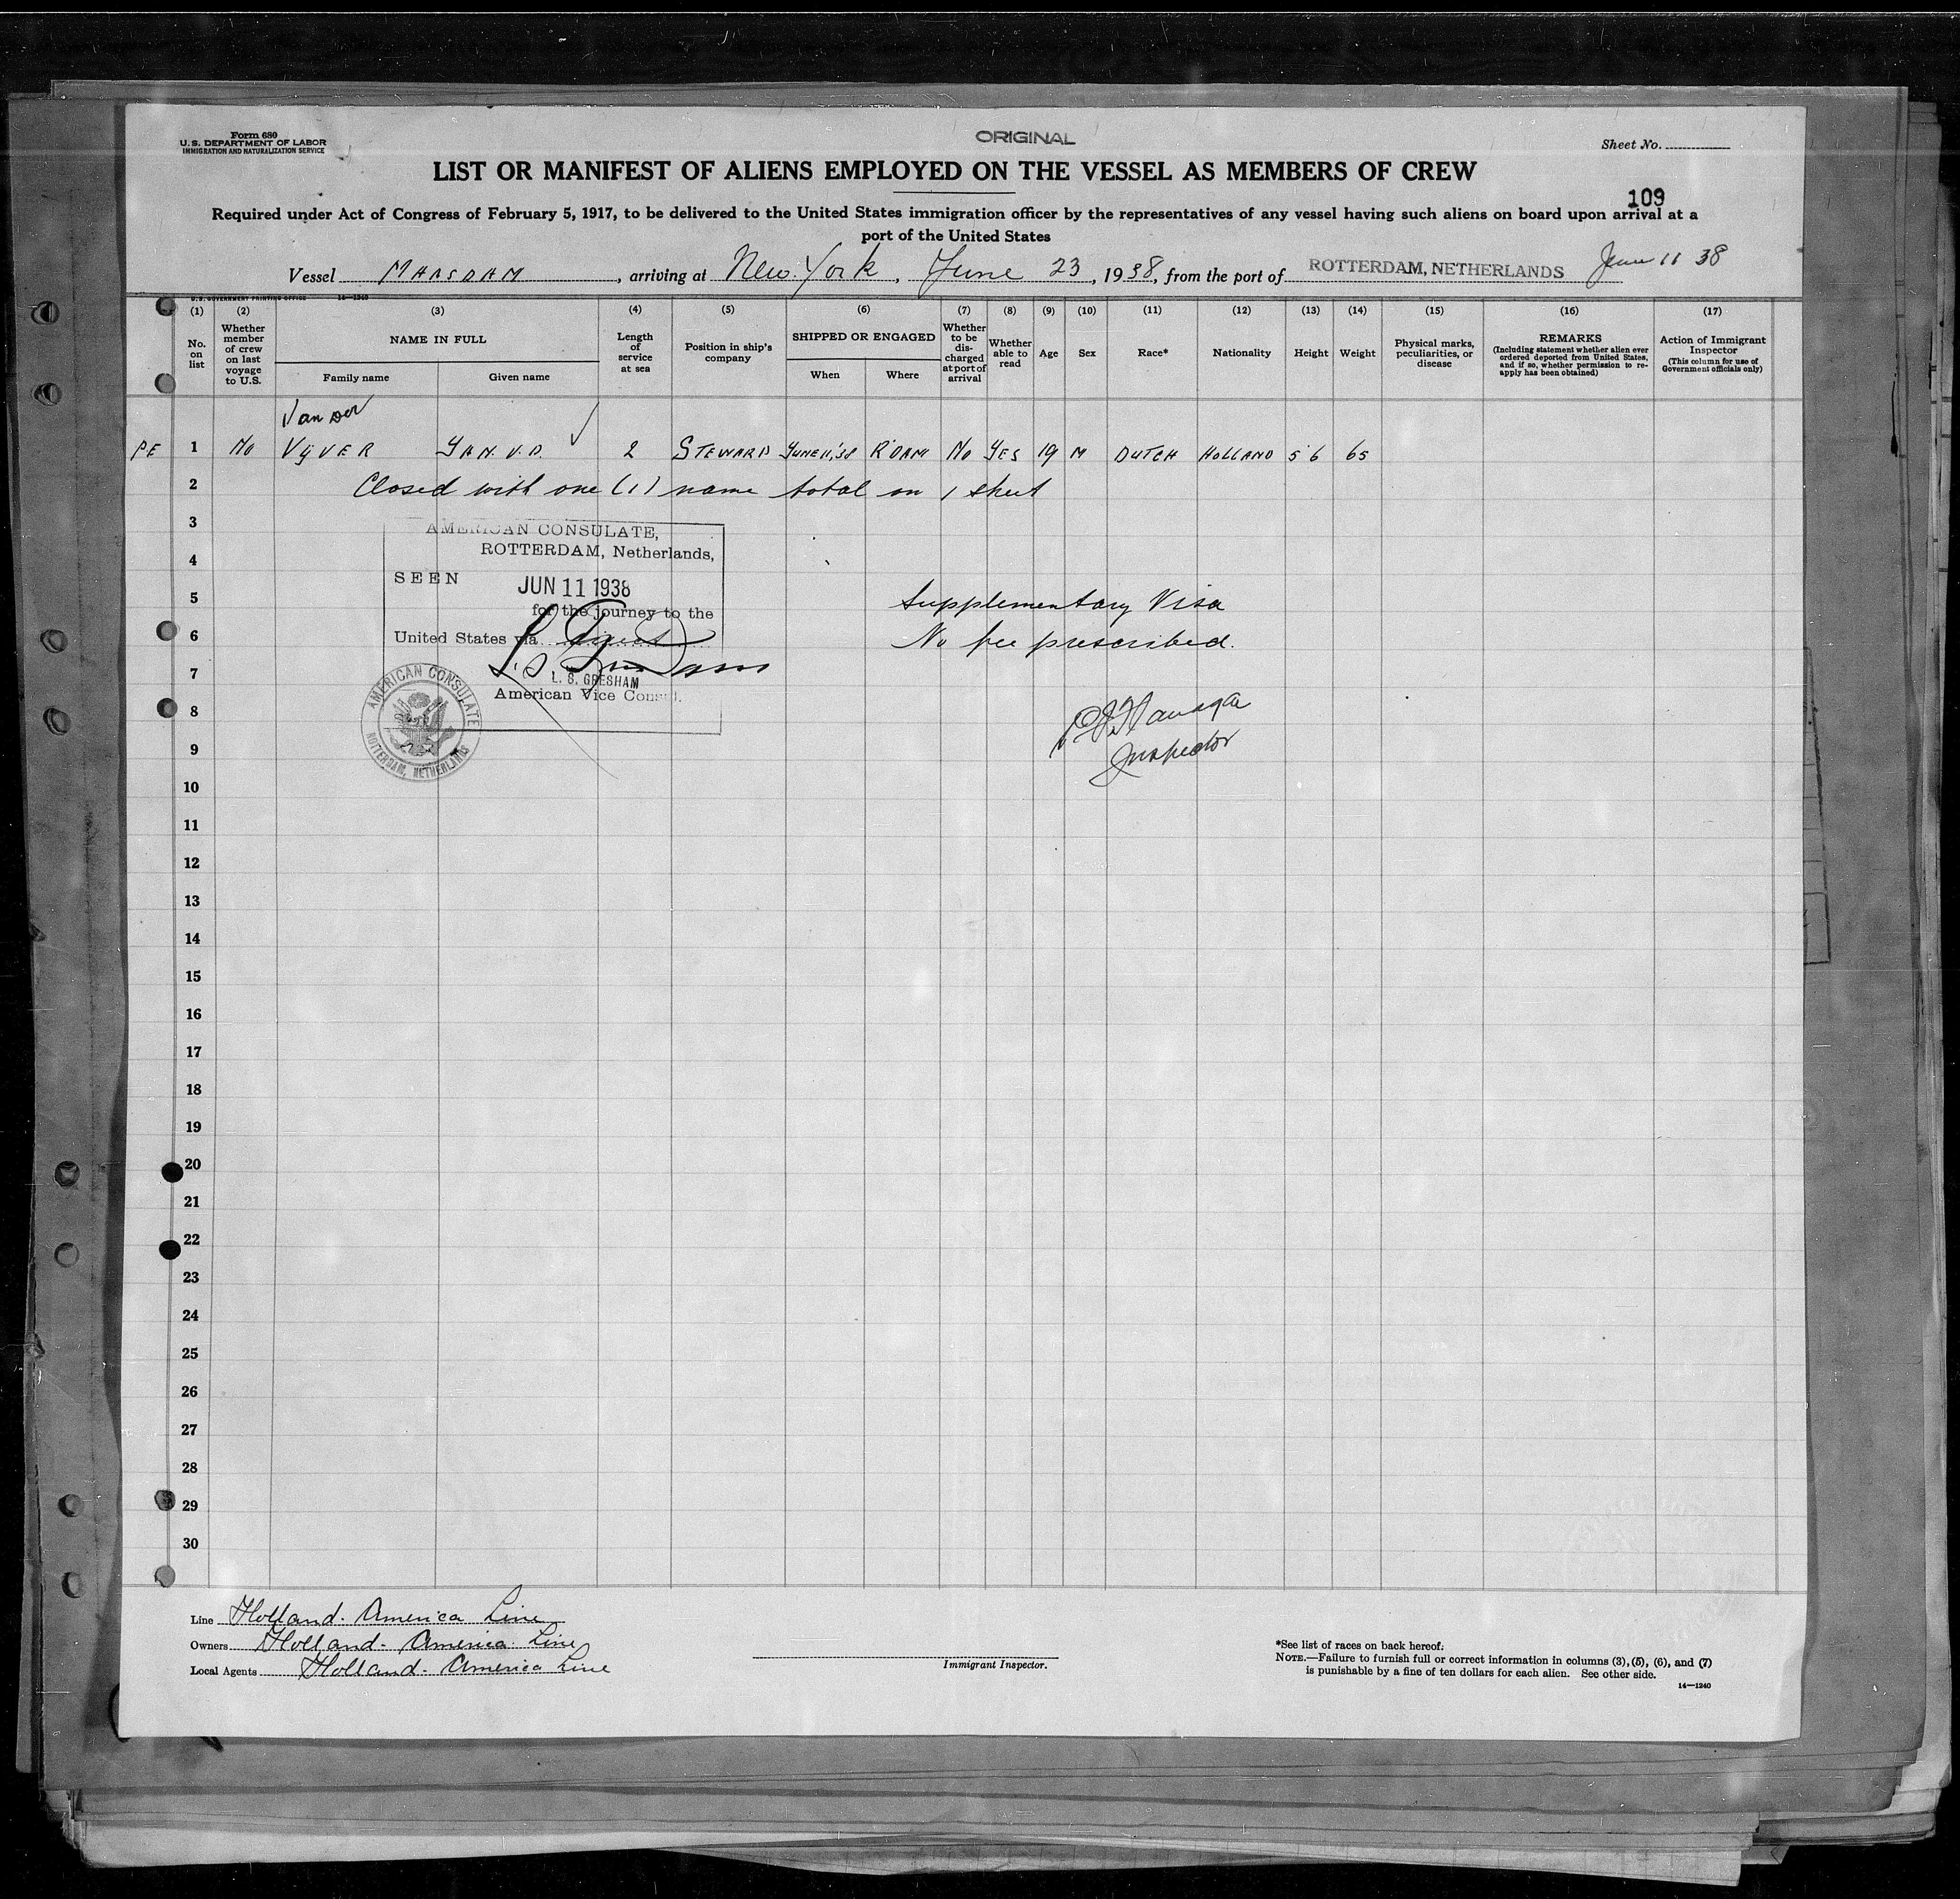 Form 680
U.S. DEPARTMENT OF LABOR
IMMIGRATION AND NATURALIZATION SERVICE
ORIGINAL
Sheet No.
LIST OR MANIFEST OF ALIENS EMPLOYED ON THE VESSEL AS MEMBERS OF CREW
109
Required under Act of Congress of February 5, 1917, to be delivered to the United States immigration officer by the representatives of any vessel having such aliens on board upon arrival at a
port of the United States
Vessel MAASDAM, arriving at New York, June 23, 1938, from the port of ROTTERDAM, NETHERLANDS June 11 38
U.S. GOVERNMENT PRINTING OFFICE 14—1240
(1) (2) (3) (4) (5) (6) (7) (8) (9) (10) (11) (12) (13) (14) (15) (16) (17)
No. on list
Whether member of crew on last voyage to U.S.
NAME IN FULL
Family name
Given name
Length of service at sea
Position in ship's company
SHIPPED OR ENGAGED
When
Where
Whether to be discharged at port of arrival
Whether able to read
Age
Sex
Race*
Nationality
Height
Weight
Physical marks, peculiarities, or disease
REMARKS
(Including statement whether alien ever ordered deported from United States, and if so, whether permission to reapply has been obtained)
Action of Immigrant Inspector
(This column for use of Government officials only)
Van der
PE 1 No VijVER JAN. V.D. 2 STEWARD JUNE 11,'38 R'DAM No YES 19 M DUTCH HOLLAND 5 6 65
2 Closed with one (1) name total on 1 sheet
3
AMERICAN CONSULATE,
ROTTERDAM, Netherlands,
4
SEEN
JUN 11 1938
5
for the journey to the
Supplementary Visa
6
United States via
No fee prescribed.
7
L. S. GRESHAM
American Vice Consul.
AMERICAN CONSULATE
ROTTERDAM, NETHERLANDS
8
9
Inspector
10
11
12
13
14
15
16
17
18
19
20
21
22
23
24
25
26
27
28
29
30
Line Holland-America Line
Owners Holland-America Line
Local Agents Holland-America Line
Immigrant Inspector.
*See list of races on back hereof.
NOTE.—Failure to furnish full or correct information in columns (3), (5), (6), and (7)
is punishable by a fine of ten dollars for each alien. See other side.
14—1240